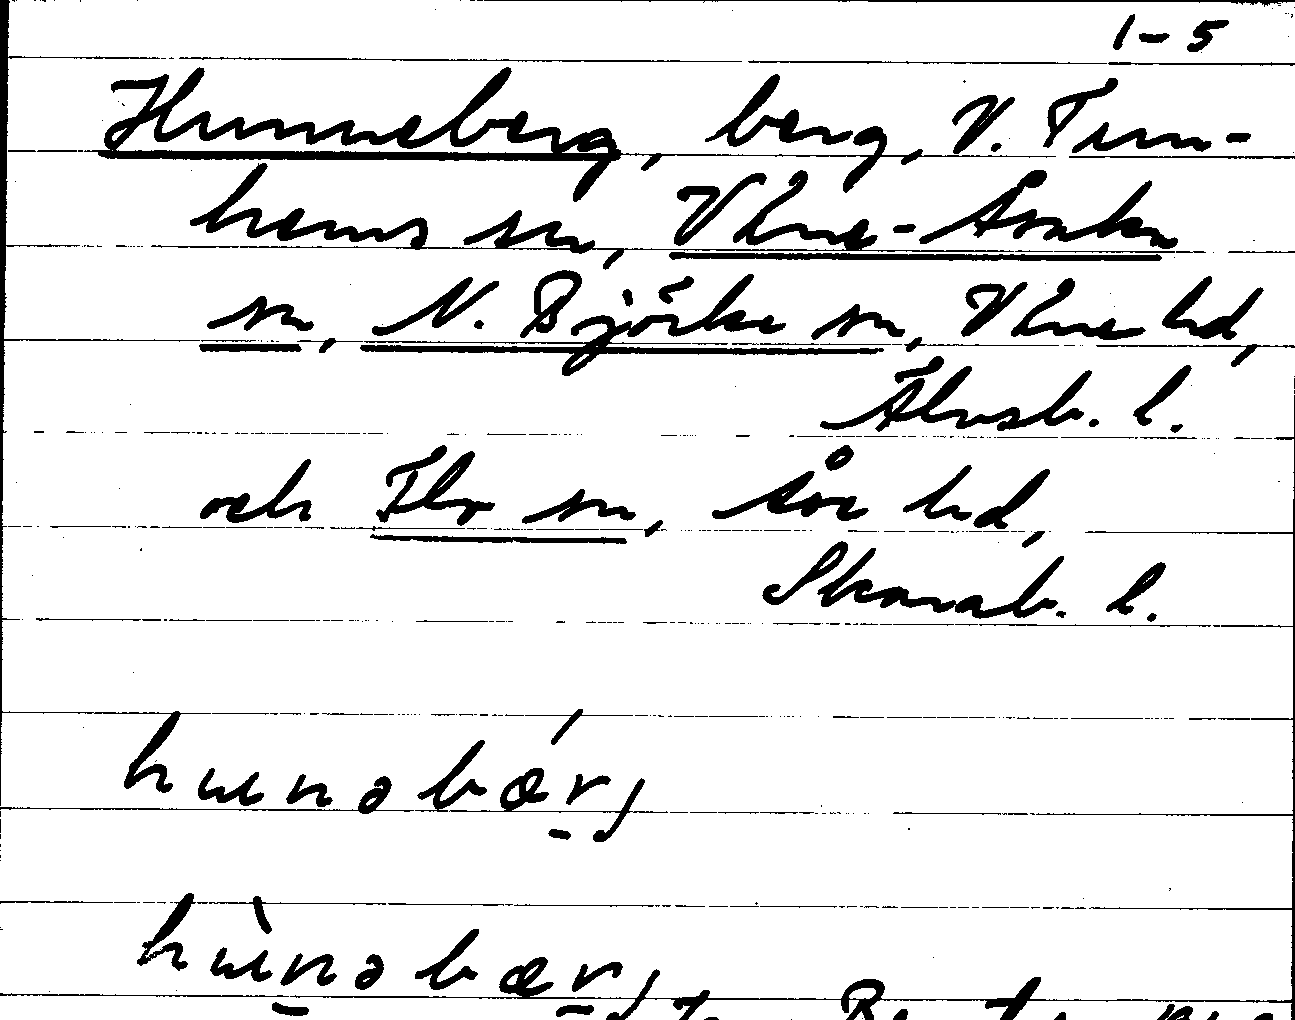 1-5
Hunneberg, berg, V. Tun-
hems sn, Väne-Åsaka
sn, N. Björke sn, Väne hd,
Älvsb. l.
och Flo sn, Åse hd,
Skarab. l.
hunəbǽrj
hùnəbærj